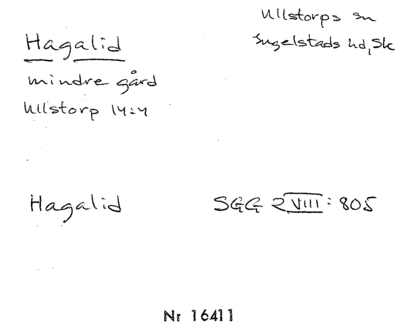 Ullstorps sn
Ingelstads hd, Sk
Hagalid
mindre gård
Ullstorp 14:4
Hagalid
SGG 2 VIII: 805
Nr 16411